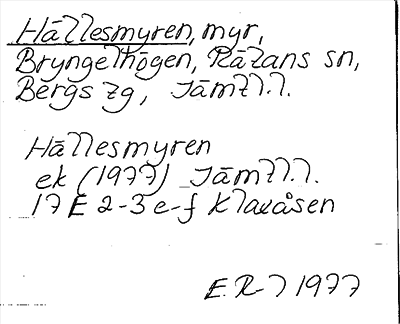 Hällesmyren, myr,
Bryngelhögen, Rätans sn,
Bergs tg, Jämtl.l.
Hällesmyren
ek (1977) Jämtl.l.
17 E 2-3 e-f Klaxåsen
E. R-7 1977